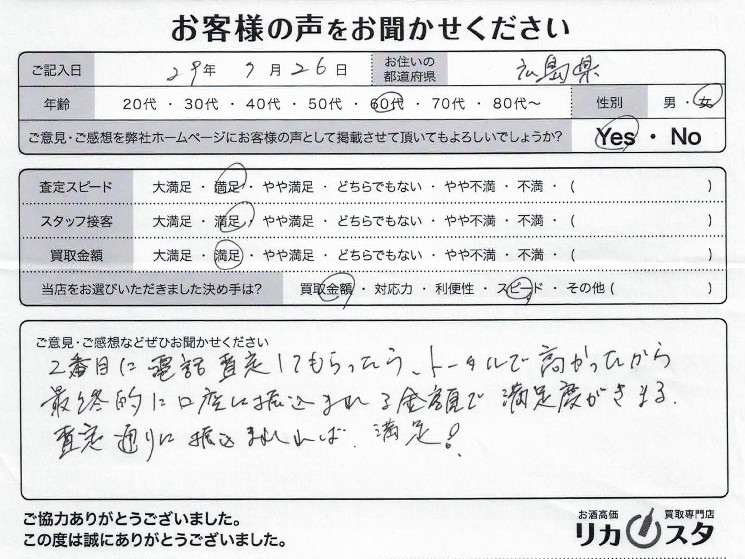 お客様の声をお聞かせください
ご記入日 29年 9月 26日 お住いの都道府県 広島県
年齢 20代・30代・40代・50代・60代・70代・80代〜 性別 男・女
ご意見・ご感想を弊社ホームページにお客様の声として掲載させて頂いてもよろしいでしょうか? Yes・No
査定スピード 大満足・満足・やや満足・どちらでもない・やや不満・不満・( )
スタッフ接客 大満足・満足・やや満足・どちらでもない・やや不満・不満・( )
買取金額 大満足・満足・やや満足・どちらでもない・やや不満・不満・( )
当店をお選びいただきました決め手は? 買取金額・対応力・利便性・スピード・その他( )
ご意見・ご感想などぜひお聞かせください
2番目に電話査定してもらったら、トータルで高かったから
最終的に口座に振込まれる金額で満足度がきまる.
査定通りに振込まれれば.満足!
ご協力ありがとうございました。
この度は誠にありがとうございました。
お酒高価 買取専門店
リカスタ